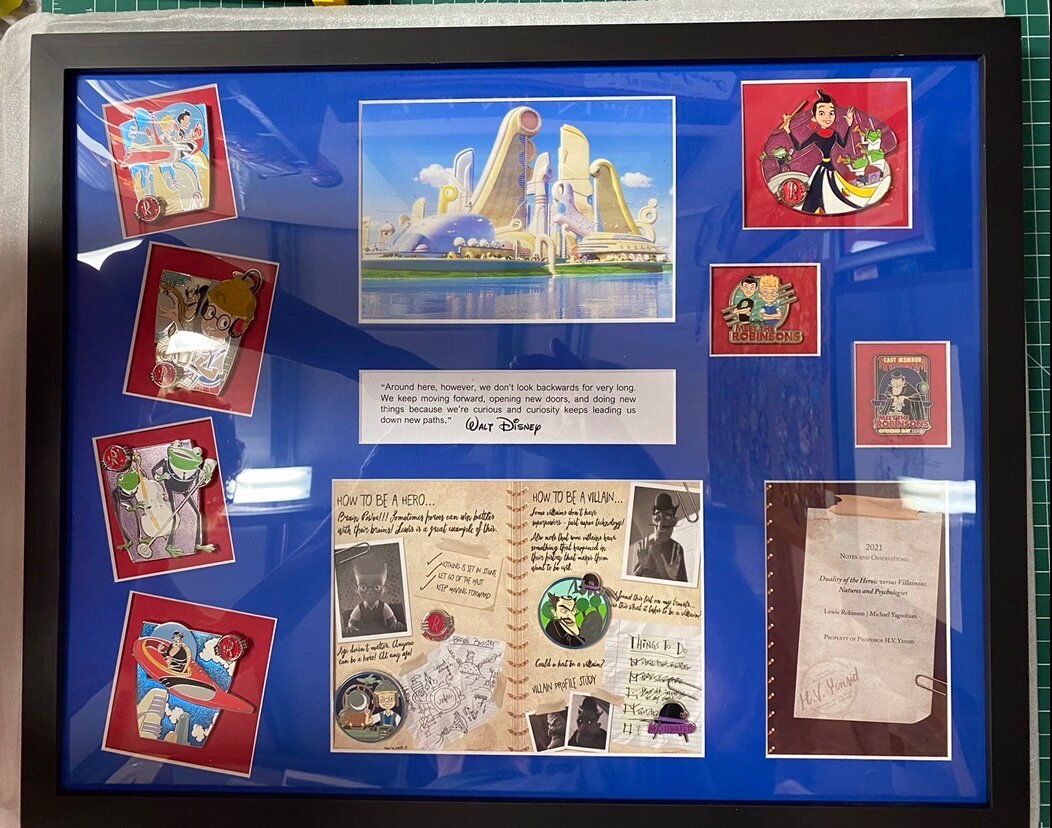 MEET THE
ROBINSONS
"Around here, however, we don't look backwards for very long.
We keep moving forward, opening new doors, and doing new
things because we're curious and curiosity keeps leading us
down new paths." Walt Disney
CAST MEMBER
MEET THE
ROBINSONS
HOW TO BE A HERO...
Brain Power!!! Sometimes heroes can win battles
with their brains! Lewis is a great example of this.
NOTHING IS SET IN STONE
LET GO OF THE PAST
KEEP MOVING FORWARD
Age doesn't matter. Anyone
can be a hero! At any age!
HOW TO BE A VILLAIN...
Some villains don't have
superpowers - just super technology!
Also note that some villains have
something that happened in
their past that makes them
want to be evil.
found this list on my travels...
is this what it takes to be a villain?
Could a hat be a villain?
VILLAIN PROFILE STUDY
THINGS TO DO
MOTIVATED
2021
NOTES AND OBSERVATIONS:
Duality of the Heroic versus Villainous
Natures and Psychologies
Lewis Robinson | Michael Yagoobian
PROPERTY OF PROFESSOR H.V. YENSID
H.V. Yensid